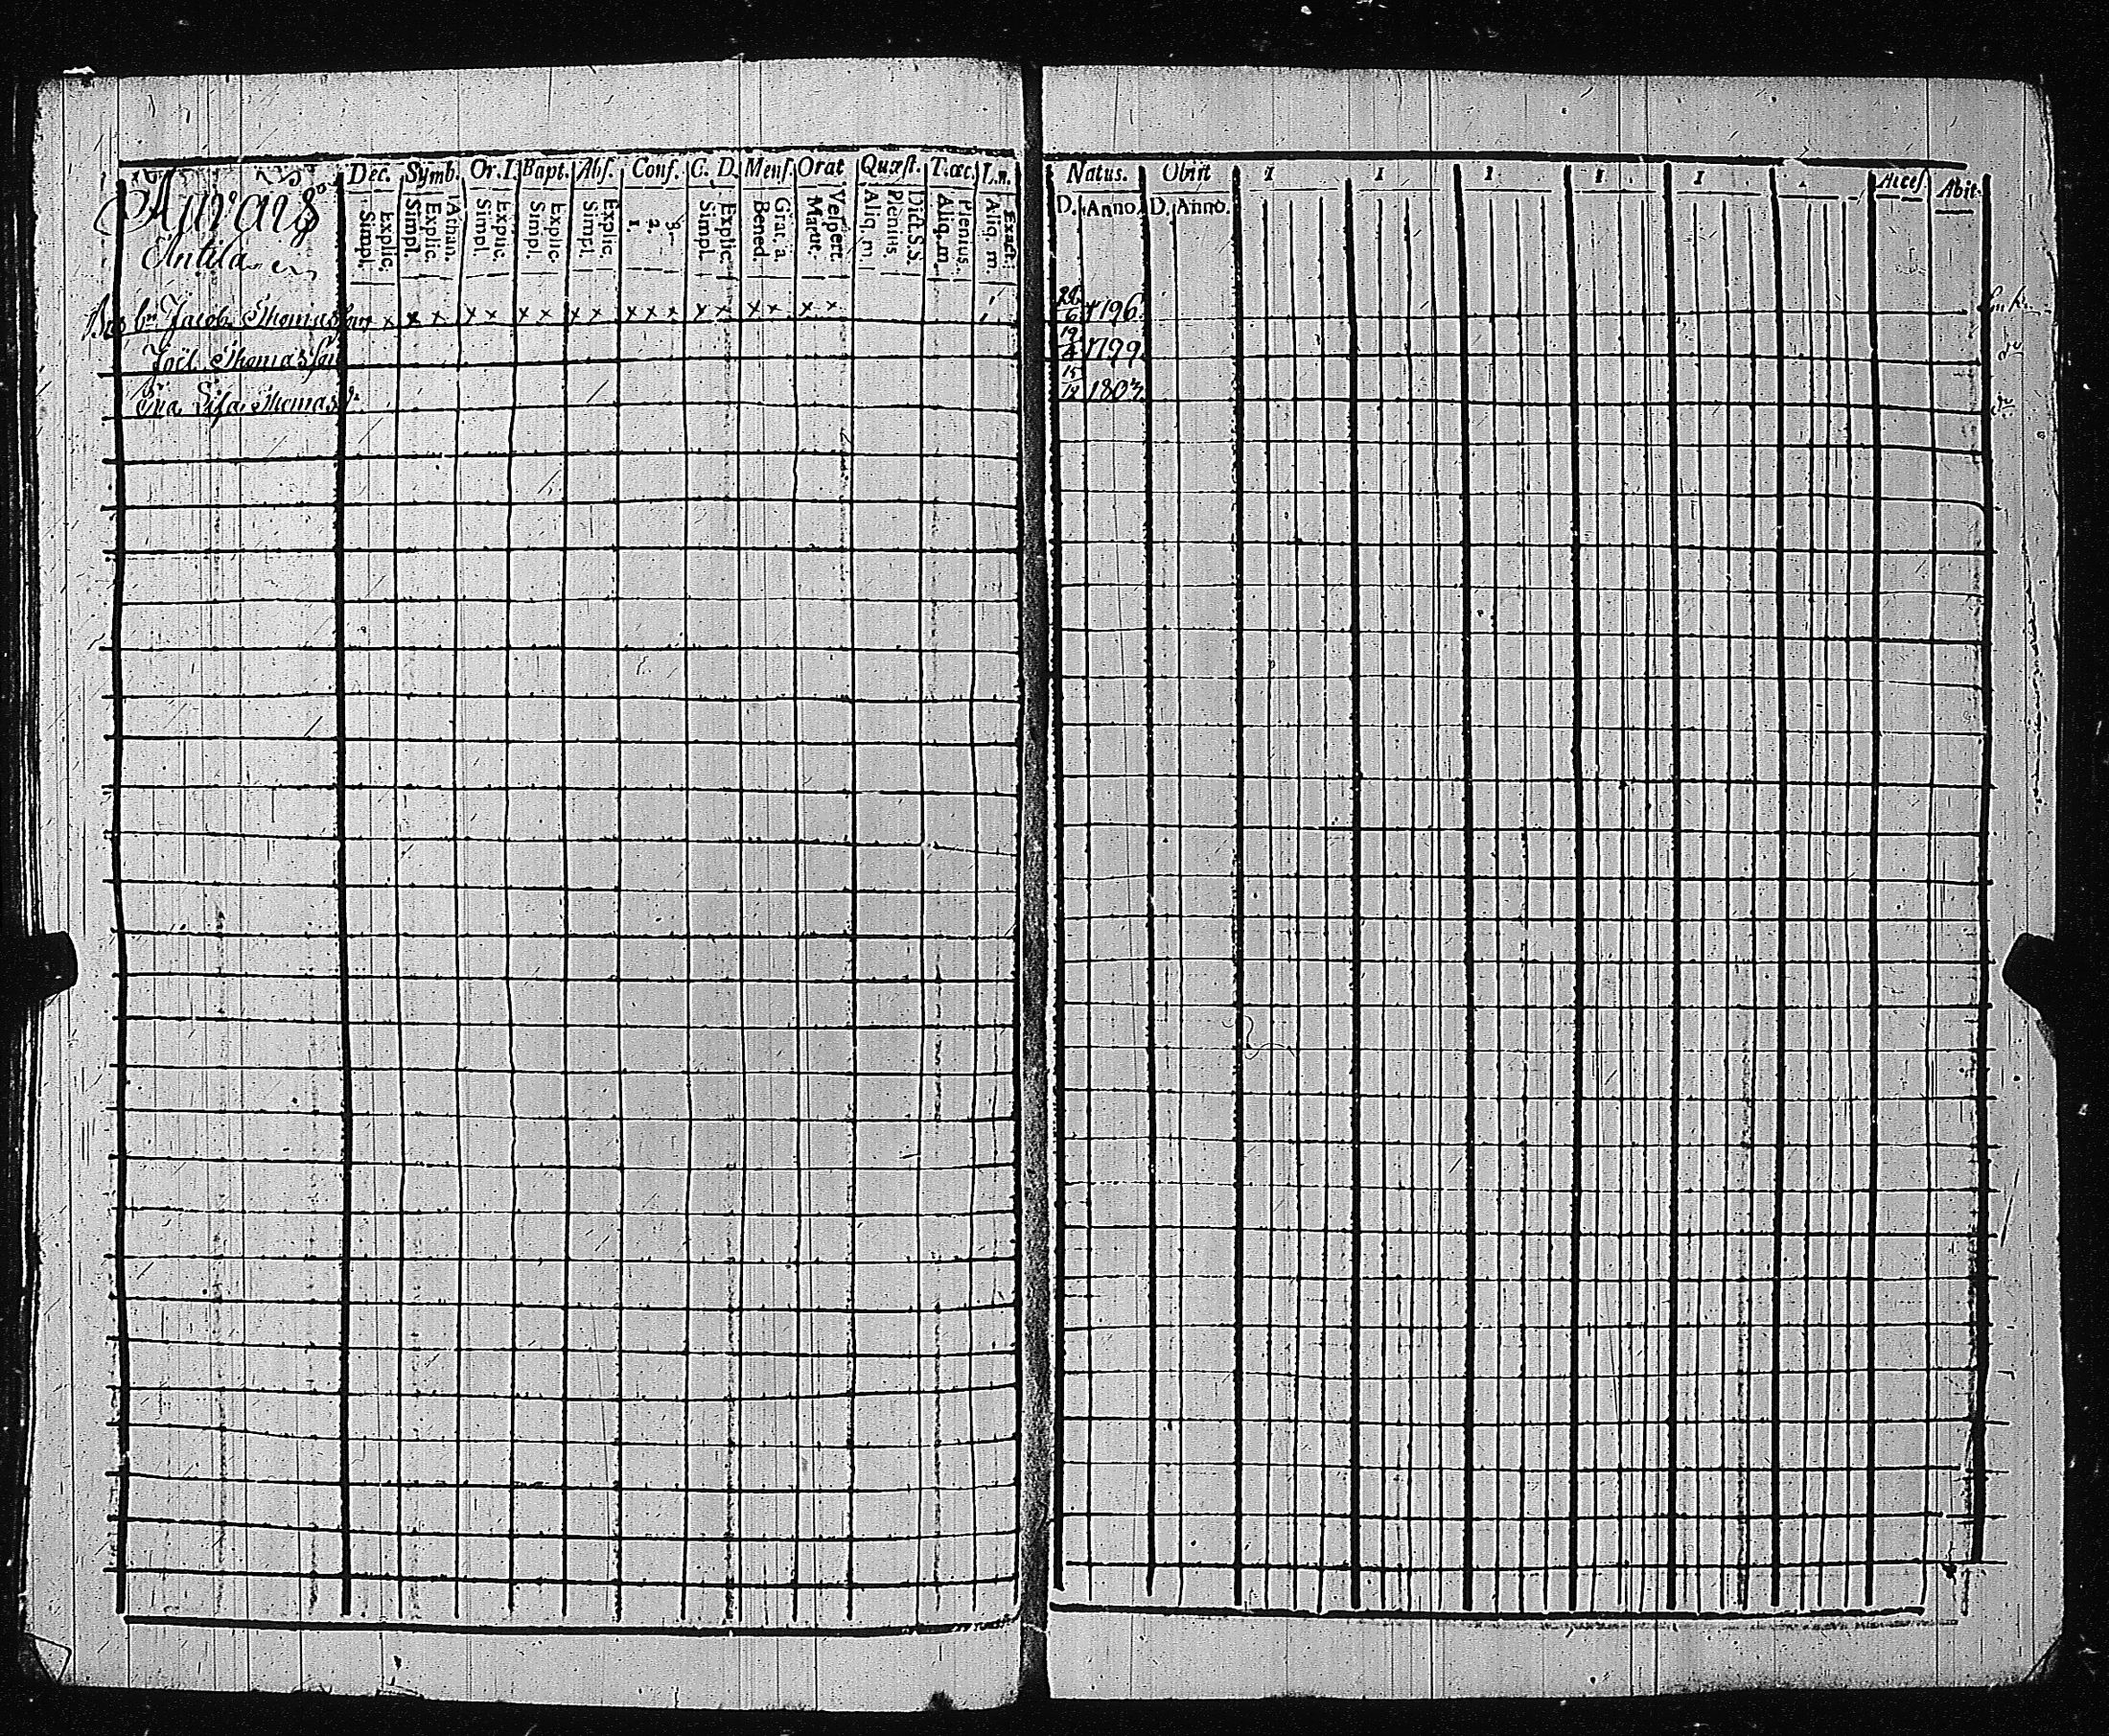 Dec. Symb. Or. D. Bapt. Abſ. Conf. C. D. Menſ. Orat Quæſt. T. œc. L. n.
Simpl. Explic. Simpl. Explic. Athan. Simpl. Explic. Simpl. Explic. Simpl. Explic. 1. 2. 3. Simpl. Explic. Bened. Grat. a. Matut. Veſpert. Aliq. m. Plenius Dict. S. S. Aliq. m. Plenius. Aliq. m. Exact.
Natus. Obiit 1 1 1 1 1 Acceſ. Abit
D. Anno. D. Anno.
Antila
Jacob Thomasson x x x x x x x x x x x x x x x x x x 1796
Joel Thomasson 19/4 1799
Eva Lisa Thomasd. 15/12 1803